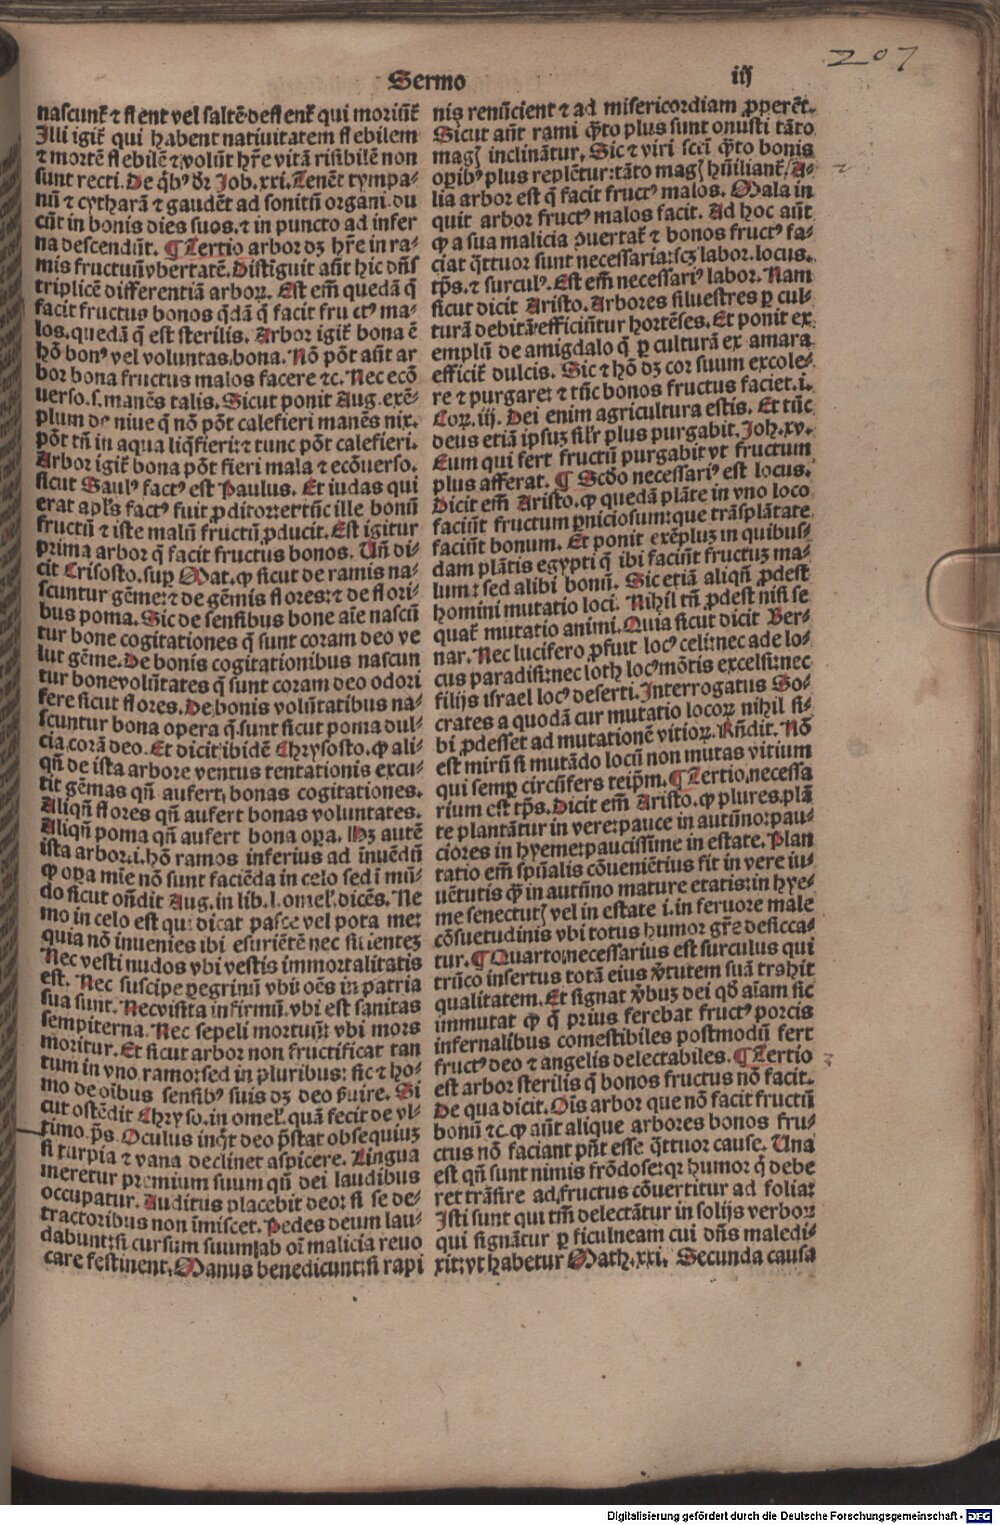 207
Sermo
iij
nascunt᷑ ⁊ flent vel saltē deflent᷑ qui moriūt᷑
Illi igit᷑ qui habent natiuitatem flebilem
⁊ mortē flebilē ⁊ volūt hr̄e vitā risibilē non
sunt recti. De q̄bꝰ dr̄ Job. xxi. Tenēt tympa⸗
nū ⁊ cytharā ⁊ gaudēt ad sonitū organi. du
cūt in bonis dies suos. ⁊ in puncto ad infer
na descendūt. ¶ Tertio arbor dꝫ hr̄e in ra⸗
mis fructuū vbertatē. Distīguit aūt hic dn̄s
triplicē differentiā arboꝝ. Est em̄ quedā q̄
facit fructus bonos q̄dā q̄ facit fructꝰ ma⸗
los. quedā q̄ est sterilis. Arbor igit᷑ bona ē
hō bonꝰ vel voluntas bona. Nō pōt aūt ar
bor bona fructus malos facere ⁊c. Nec ecō
uerso. s. manēs talis. Sicut ponit Aug. exē⸗
plum de niue q̄ nō pōt calefieri manēs nix.
pōt tn̄ in aqua liq̄fieri: ⁊ tunc pōt calefieri.
Arbor igit᷑ bona pōt fieri mala ⁊ ecōuerso.
sicut Saulꝰ factꝰ est Paulus. Et iudas qui
erat apl̄s factꝰ fuit ꝓditor: et tūc ille bonū
fructū ⁊ iste malū fructū ꝓducit. Est igitur
prima arbor q̄ facit fructus bonos. Vn̄ di⸗
cit Crisosto. suꝑ Mat. ꝙ sicut de ramis na⸗
scuntur gēme: ⁊ de gēmis flores: ⁊ de flori⸗
bus poma. Sic de sensibus bone aīe nascū
tur bone cogitationes q̄ sunt coram deo ve
lut gēme. De bonis cogitationibus nascun
tur bone volūtates q̄ sunt coram deo odori
fere sicut flores. De bonis volūtatibus na⸗
scuntur bona opera q̄ sunt sicut poma dul⸗
cia corā deo. Et dicit ibidē Chrysosto. ꝙ ali⸗
qn̄ de ista arbore ventus tentationis excu⸗
tit gēmas qn̄ aufert bonas cogitationes.
Aliqn̄ flores qn̄ aufert bonas voluntates.
Aliqn̄ poma qn̄ aufert bona oꝑa. Hꝫ autē
ista arbor. i. hō ramos inferius ad inuēdū
ꝙ oꝑa mīe nō sunt faciēda in celo sed ī mū⸗
do sicut on̄dit Aug. in lib. l. omel᷑. dicēs. Ne
mo in celo est qui dicat pasce vel pota me:
quia nō inuenies ibi esuriētē nec sitientez
Nec vesti nudos vbi vestis immortalitatis
est. Nec suscipe ꝑegrinū vbi oēs in patria
sua sunt. Nec visita infirmū. vbi est sanitas
sempiterna. Nec sepeli mortuū: vbi mors
moritur. Et sicut arbor non fructificat tan
tum in vno ramo: sed in pluribus: sic ⁊ ho⸗
mo de oībus sensibꝰ suis dꝫ deo ẜuire. Si
cut ostēdit Chryso. in omel᷑. quā fecit de vl⸗
timo ps̄. Oculus inq̄t deo p̄stat obsequiuꝫ
si turpia ⁊ vana declinet aspicere. Lingua
meretur premium suum qn̄ dei laudibus
occupatur. Auditus placebit deo: si se de⸗
tractoribus non īmiscet. Pedes deum lau⸗
dabunt: si cursum suum ab oī malicia reuo
care festinent. Manus benedicunt: si rapi
nis renūcient ⁊ ad misericordiam ꝓperēt.
Sicut aūt rami q̄ꝫto plus sunt onusti tāto
magꝭ inclinātur. Sic ⁊ viri scti q̄ꝫto bonis
oꝑibꝰ plus replētur: tāto magꝭ hūiliant᷑. A⸗
lia arbor est q̄ facit fructꝰ malos. Mala in
quit arbor fructꝰ malos facit. Ad hoc aūt
ꝙ a sua malicia ꝯuertat᷑ ⁊ bonos fructꝰ fa⸗
ciat q̄ttuor sunt necessaria: scꝫ labor. locus.
tp̄s. ⁊ surculꝰ. Est em̄ necessariꝰ labor. Nam
sicut dicit Aristo. Arbores siluestres ꝑ cul⸗
turā debitā efficiūtur hortēses. Et ponit ex
emplū de amigdalo q̄ ꝑ culturā ex amara
efficit᷑ dulcis. Sic ⁊ hō dꝫ cor suum excole⸗
re ⁊ purgare: ⁊ tūc bonos fructus faciet. i.
Coꝝ. iij. Dei enim agricultura estis. Et tūc
deus etiā ipsuꝫ sil᷑r plus purgabit. Joh. xv.
Eum qui fert fructū purgabit vt fructum
plus afferat. ¶ Scd̄o necessariꝰ est locus.
Dicit em̄ Aristo. ꝙ quedā plāte in vno loco
faciūt fructum ꝑniciosum: que trāsplātate
faciūt bonum. Et ponit exēpluꝫ in quibus⸗
dam plātis egypti q̄ ibi faciūt fructuꝫ ma⸗
lum: sed alibi bonū. Sic etiā aliqn̄ ꝓdest
homini mutatio loci. Nihil tn̄ ꝓdest nisi se
quat᷑ mutatio animi. Quia sicut dicit Ber⸗
nar. Nec lucifero ꝓfuit locꝰ celi: nec ade lo⸗
cus paradisi: nec loth locꝰ mōtis excelsi: nec
filijs israel locꝰ deserti. Interrogatus So⸗
crates a quodā cur mutatio locoꝝ nihil si⸗
bi ꝓdesset ad mutationē vitioꝝ. Rn̄dit. Nō
est mirū si mutādo locū non mutas vitium
qui semꝑ circūfers teip̄m. ¶ Tertio necessa
rium est tp̄s. Dicit em̄ Aristo. ꝙ plures plā
te plantātur in vere: pauce in autūno: pau⸗
ciores in hyeme: paucissime in estate. Plan
tatio em̄ spūalis cōueniētius fit in vere iu⸗
uētutis q̄ꝫ in autūno mature etatis: in hye⸗
me senectutꝭ vel in estate i. in feruore male
cōsuetudinis vbi totus humor gr̄e desicca⸗
tur. ¶ Quarto necessarius est surculus qui
trūco insertus totā eius v̄tutem suā trahit
qualitatem. Et signat v̄buꝫ dei qd̄ aīam sic
immutat ꝙ q̄ prius ferebat fructꝰ porcis
infernalibus comestibiles postmodū fert
fructꝰ deo ⁊ angelis delectabiles. ¶ Tertio
est arbor sterilis q̄ bonos fructus nō facit.
De qua dicit. Oīs arbor que nō facit fructū
bonū ⁊c. ꝙ aūt alique arbores bonos fru⸗
ctus nō faciant pn̄t esse q̄ttuor cause. Una
est qn̄ sunt nimis frōdose: qꝛ humor q̄ debe
ret trāsire ad fructus cōuertitur ad folia:
Isti sunt qui tm̄ delectātur in folijs verboꝝ
qui signātur ꝑ ficulneam cui dn̄s maledi⸗
xit: vt habetur Math. xxi. Secunda causa
Digitalisierung gefördert durch die Deutsche Forschungsgemeinschaft - DFG